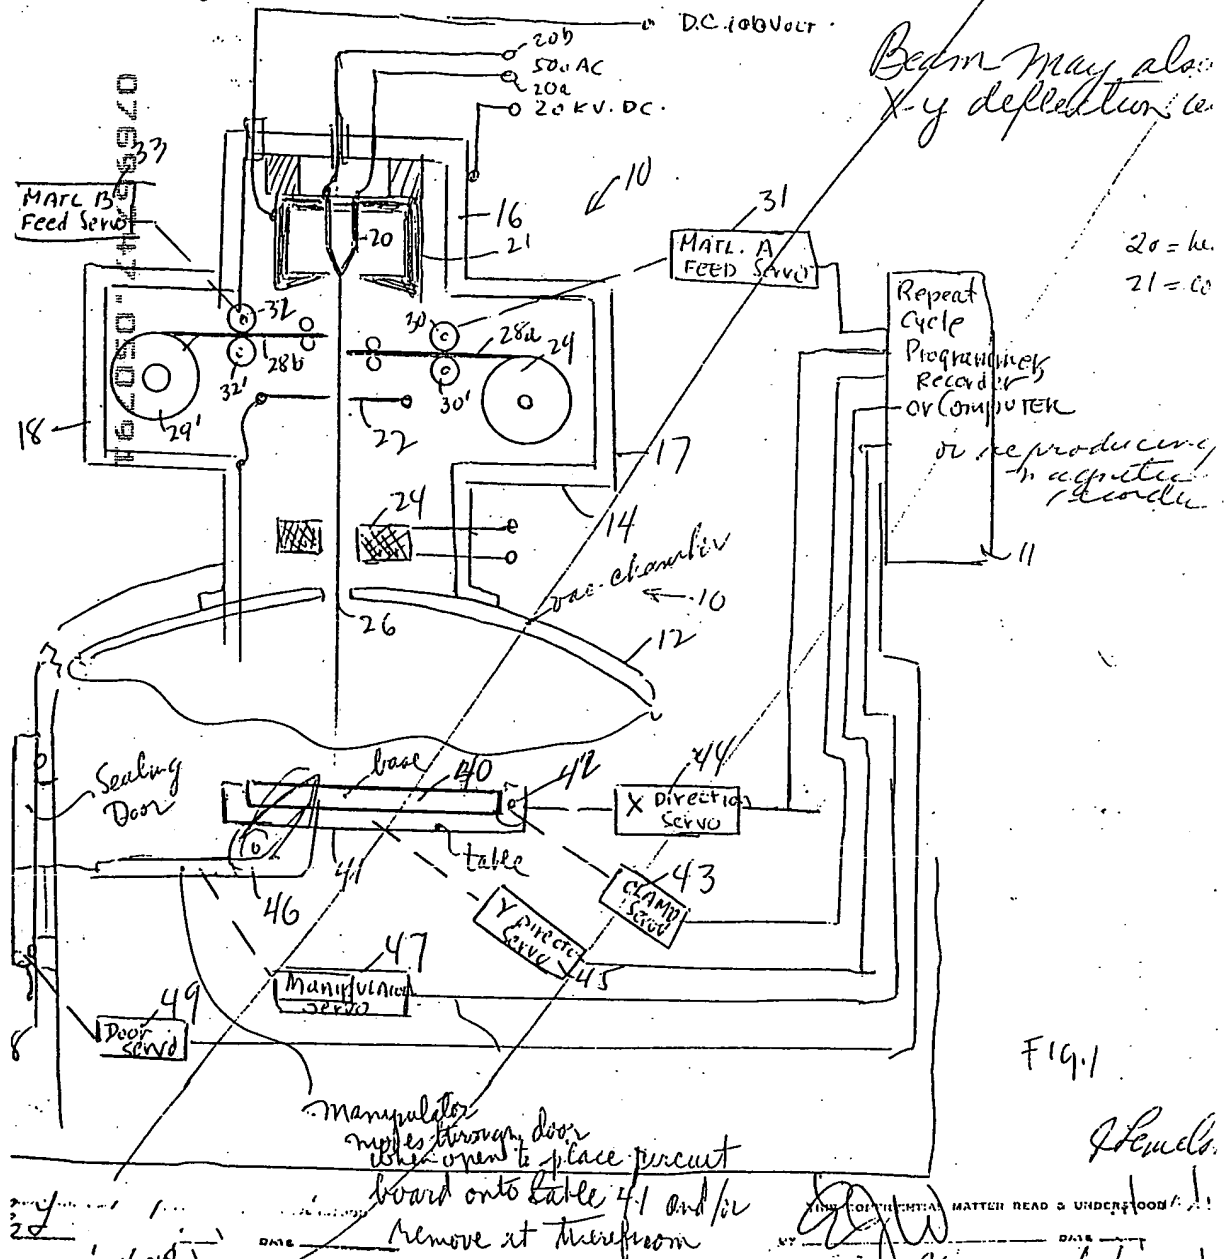 D.C. 100 VOLT
20b
50v AC
20a
20 KV. DC.
Beam may also
X-y deflection
33
MATL B
Feed Servo
10
16
20
21
31
MATL. A
FEED Servo
20 =
21 =
Repeat
Cycle
Programmer
Recorder
or COMPUTER
or reproducing
magnetic
recorder
11
32
30
28a
29
28b
32'
30'
29'
22
18
17
24
14
vac. chamber
10
26
12
Sealing
Door
base
40
42
44
X Direction
Servo
table
41
46
43
CLAMP
Servo
Y Direction
Servo
45
47
Manipulator
Servo
49
Door
Servo
8
FIG. 1
manipulator
moves through door
when open to place circuit
board onto table 41 and/or
remove it therefrom
THIS CONFIDENTIAL MATTER READ & UNDERSTOOD
DATE
BY
DATE